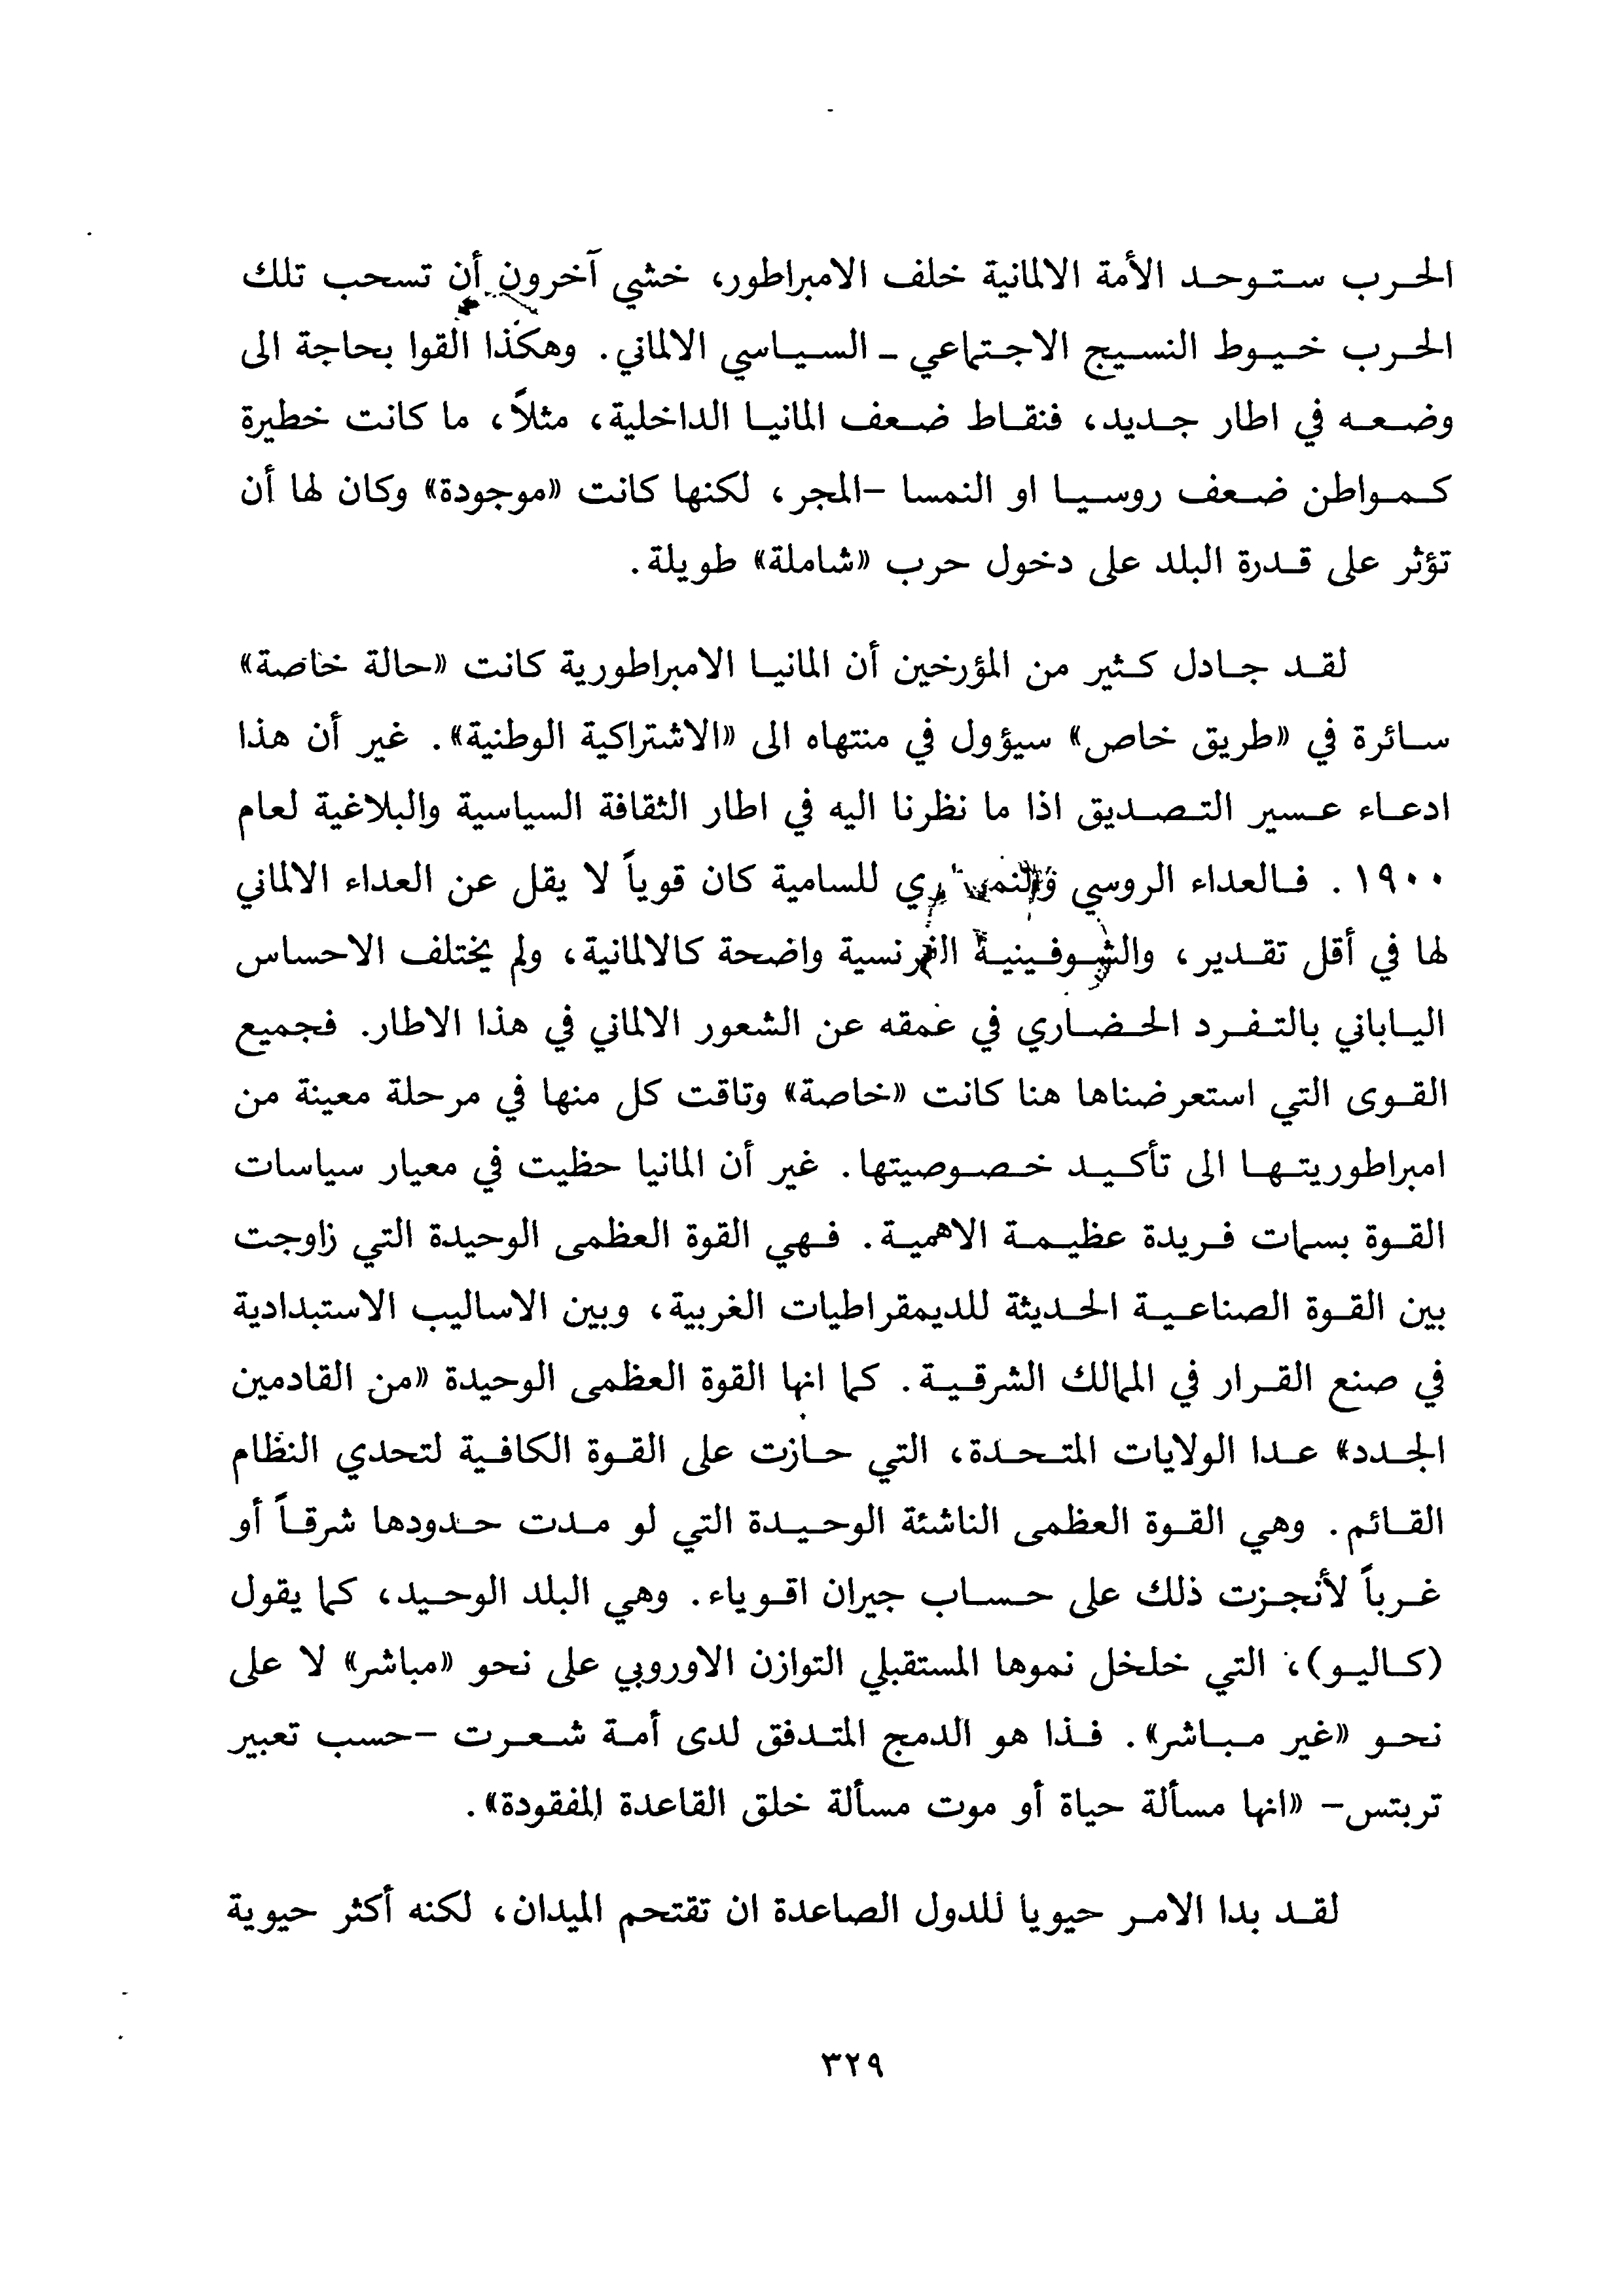 الحرب ستوحد الأمة الالمانية خلف الامبراطور، خشي آخرون أن تسحب تلك
الحرب خيوط النسيج الاجتماعي ـ السياسي الالماني. وهكذا القوا بحاجة الى
وضعه في اطار جديد، فنقاط ضعف المانيا الداخلية، مثلاً، ما كانت خطيرة
كمواطن ضعف روسيا او النمسا -المجر، لكنها كانت «موجودة» وكان لها أن
تؤثر على قدرة البلد على دخول حرب «شاملة» طويلة.
لقد جادل كثير من المؤرخين أن المانيا الامبراطورية كانت «حالة خاصة»
سائرة في «طريق خاص» سيؤول في منتهاه الى «الاشتراكية الوطنية». غير أن هذا
ادعاء عسير التصديق اذا ما نظرنا اليه في اطار الثقافة السياسية والبلاغية لعام
١٩٠٠. فالعداء الروسي للسامية كان قوياً لا يقل عن العداء الالماني
لها في أقل تقدير، والشوفينية الفرنسية واضحة كالالمانية، ولم يختلف الاحساس
الياباني بالتفرد الحضاري في عمقه عن الشعور الالماني في هذا الاطار. فجميع
القوى التي استعرضناها هنا كانت «خاصة» وتاقت كل منها في مرحلة معينة من
امبراطوريتها الى تأكيد خصوصيتها. غير أن المانيا حظيت في معيار سياسات
القوة بسمات فريدة عظيمة الاهمية. فهي القوة العظمى الوحيدة التي زاوجت
بين القوة الصناعية الحديثة للديمقراطيات الغربية، وبين الاساليب الاستبدادية
في صنع القرار في الممالك الشرقية. كما انها القوة العظمى الوحيدة «من القادمين
الجدد» عدا الولايات المتحدة، التي حازت على القوة الكافية لتحدي النظام
القائم. وهي القوة العظمى الناشئة الوحيدة التي لو مدت حدودها شرقاً أو
غرباً لأنجزت ذلك على حساب جيران اقوياء. وهي البلد الوحيد، كما يقول
(كاليو)، التي خلخل نموها المستقبلي التوازن الاوروبي على نحو «مباشر» لا على
نحو «غير مباشر». فذا هو الدمج المتدفق لدى أمة شعرت -حسب تعبير
تربتس- «انها مسألة حياة أو موت مسألة خلق القاعدة المفقودة».
لقد بدا الامر حيويا للدول الصاعدة ان تقتحم الميدان، لكنه أكثر حيوية
٣٢٩